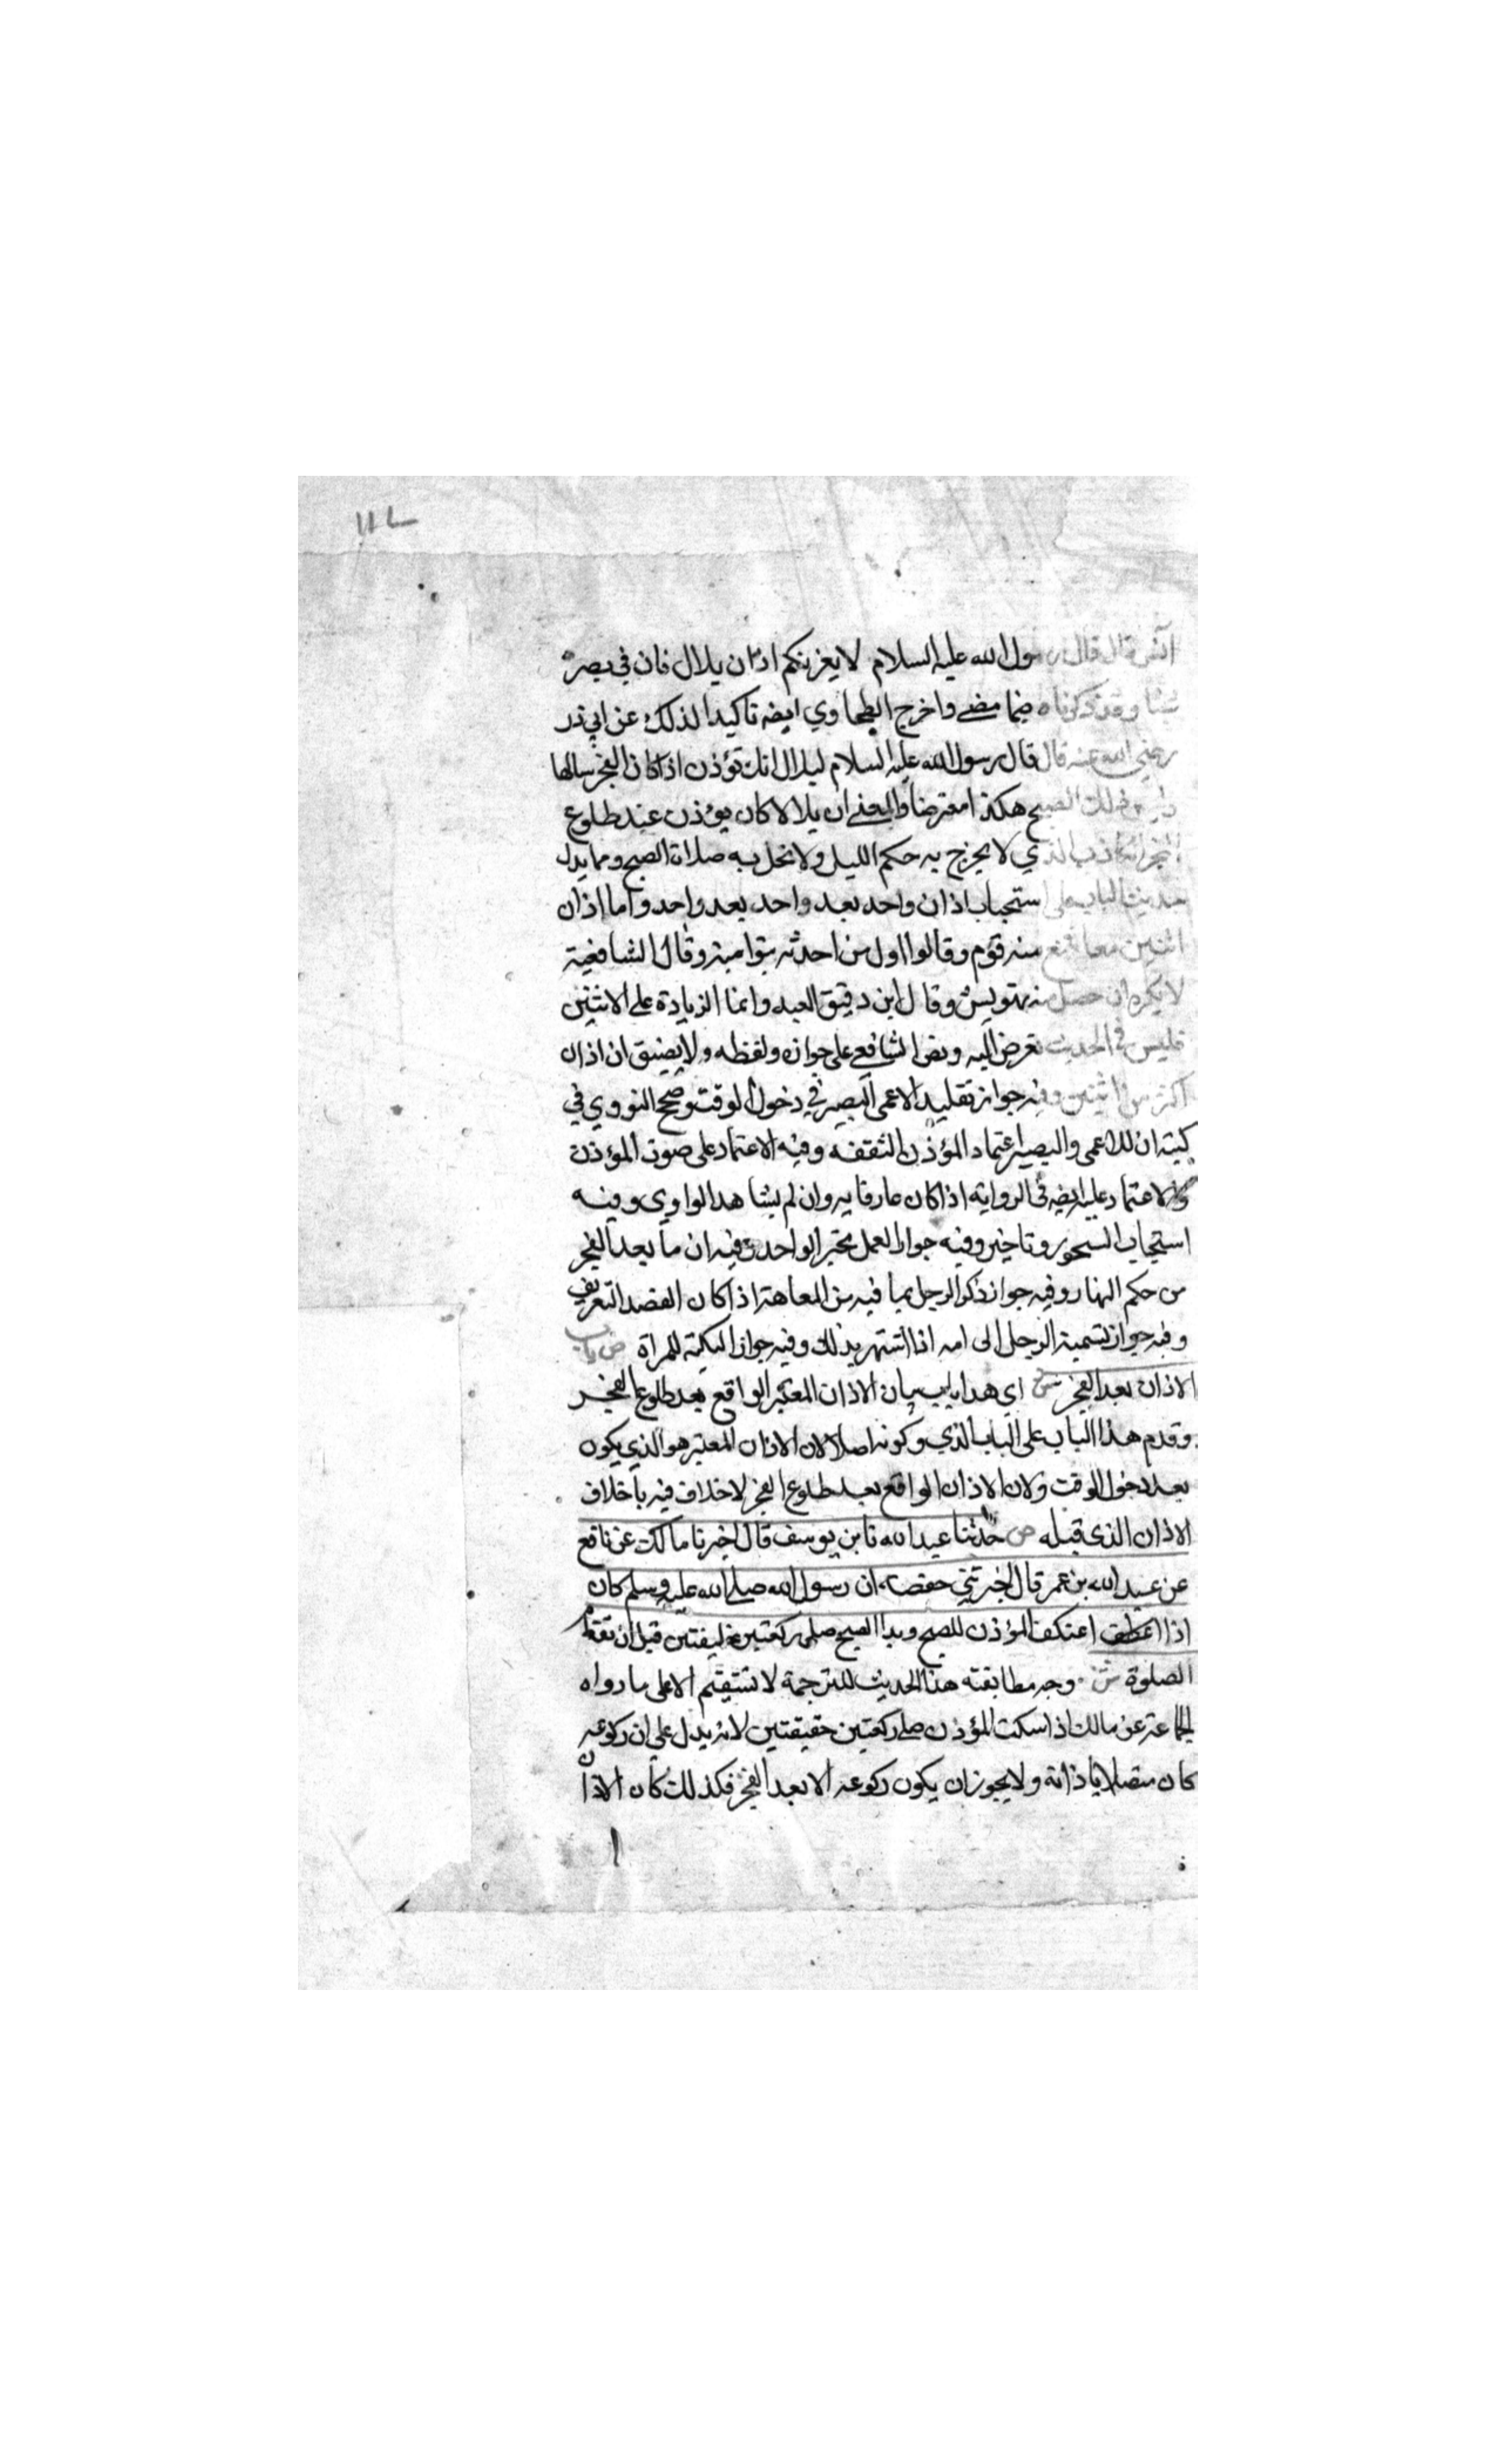 انس قال قال رسول الله عليه السلام لا يغرنكم اذان بلال فان في بصره
شيئا وقد ذكرناه فيما مضى واخرج الطحاوي ايضه تاكيدا لذلك عن ابي ذر
رضي الله عنه قال قال رسول الله عليه السلام لبلال انك تؤذن اذا كان الفجر ساطعا
وليس ذلك الصبح هكذا معترضا والمعنى ان بلالا كان يؤذن عند طلوع
الفجر الكاذب الذي لا يخرج به حكم الليل ولا تحل به صلاة الصبح ومما يدل
حديث الباب على استحباب اذان واحد بعد واحد بعد واحد واما اذان
اثنين معا فمنع منه قوم وقالوا اول من احدثه بنوا مية وقال الشافعية
لا يكره ان حصل منه تهويش وقال ابن دقيق العيد وانما الزيادة على الاثنين
فليس في الحديث تعرض اليه ونص الشافعي على جوازه ولفظه ولا يضيق ان اذان
اكثر من اثنين وفيه جواز تقليد الاعمى البصير في دخول الوقت وصحح النووي في
كتبه ان للاعمى والبصير اعتماد المؤذن الثقفه وفيه الاعتماد على صوت المؤذن
والاعتماد عليه ايضه في الرواية اذا كان عارفا به وان لم يشاهد الراوي وفيه
استحباب السحور وتاخيره وفيه جواز العمل بخبر الواحد وفيه ان ما بعد الفجر
من حكم النهار وفيه جواز ذكر الرجل بما فيه من العاهة اذا كان القصد التعريف
وفيه جواز تسمية الرجل الى امه اذا اشتهر بذلك وفيه جواز التكية للمراة ص باب
الاذان بعد الفجر ش اي هذا باب بيان الاذان المعتبر الواقع بعد طلوع الفجر
وقدم هذا الباب على الباب الذي وكونه اصلا لان الاذان المعتبر هو الذي يكون
بعد دخول الوقت ولان الاذان الواقع بعد طلوع الفجر لا خلاف فيه بأخلاف
الاذان الذي قبله ص حدثنا عبد الله نا بن يوسف قال اخبرنا مالك عن نافع
عن عبد الله بن عمر قال اخبرتني حفصة ان رسول الله صلى الله عليه وسلم كان
اذا اعتكف المؤذن للصبح وبدا الصبح صلى ركعتين خفيفتين قبل ان تقام
الصلوة ش وجه مطابقته هذا الحديث للترجمة لا تستقيم الا على ما رواه
الجماعة عن مالك اذا سكت المؤذن صلى ركعتين خفيفتين لانه يدل على ان ركوعه
كان متصلا باذانه ولا يجوز ان يكون ركوعه الا بعد الفجر فكذلك كان الاذان